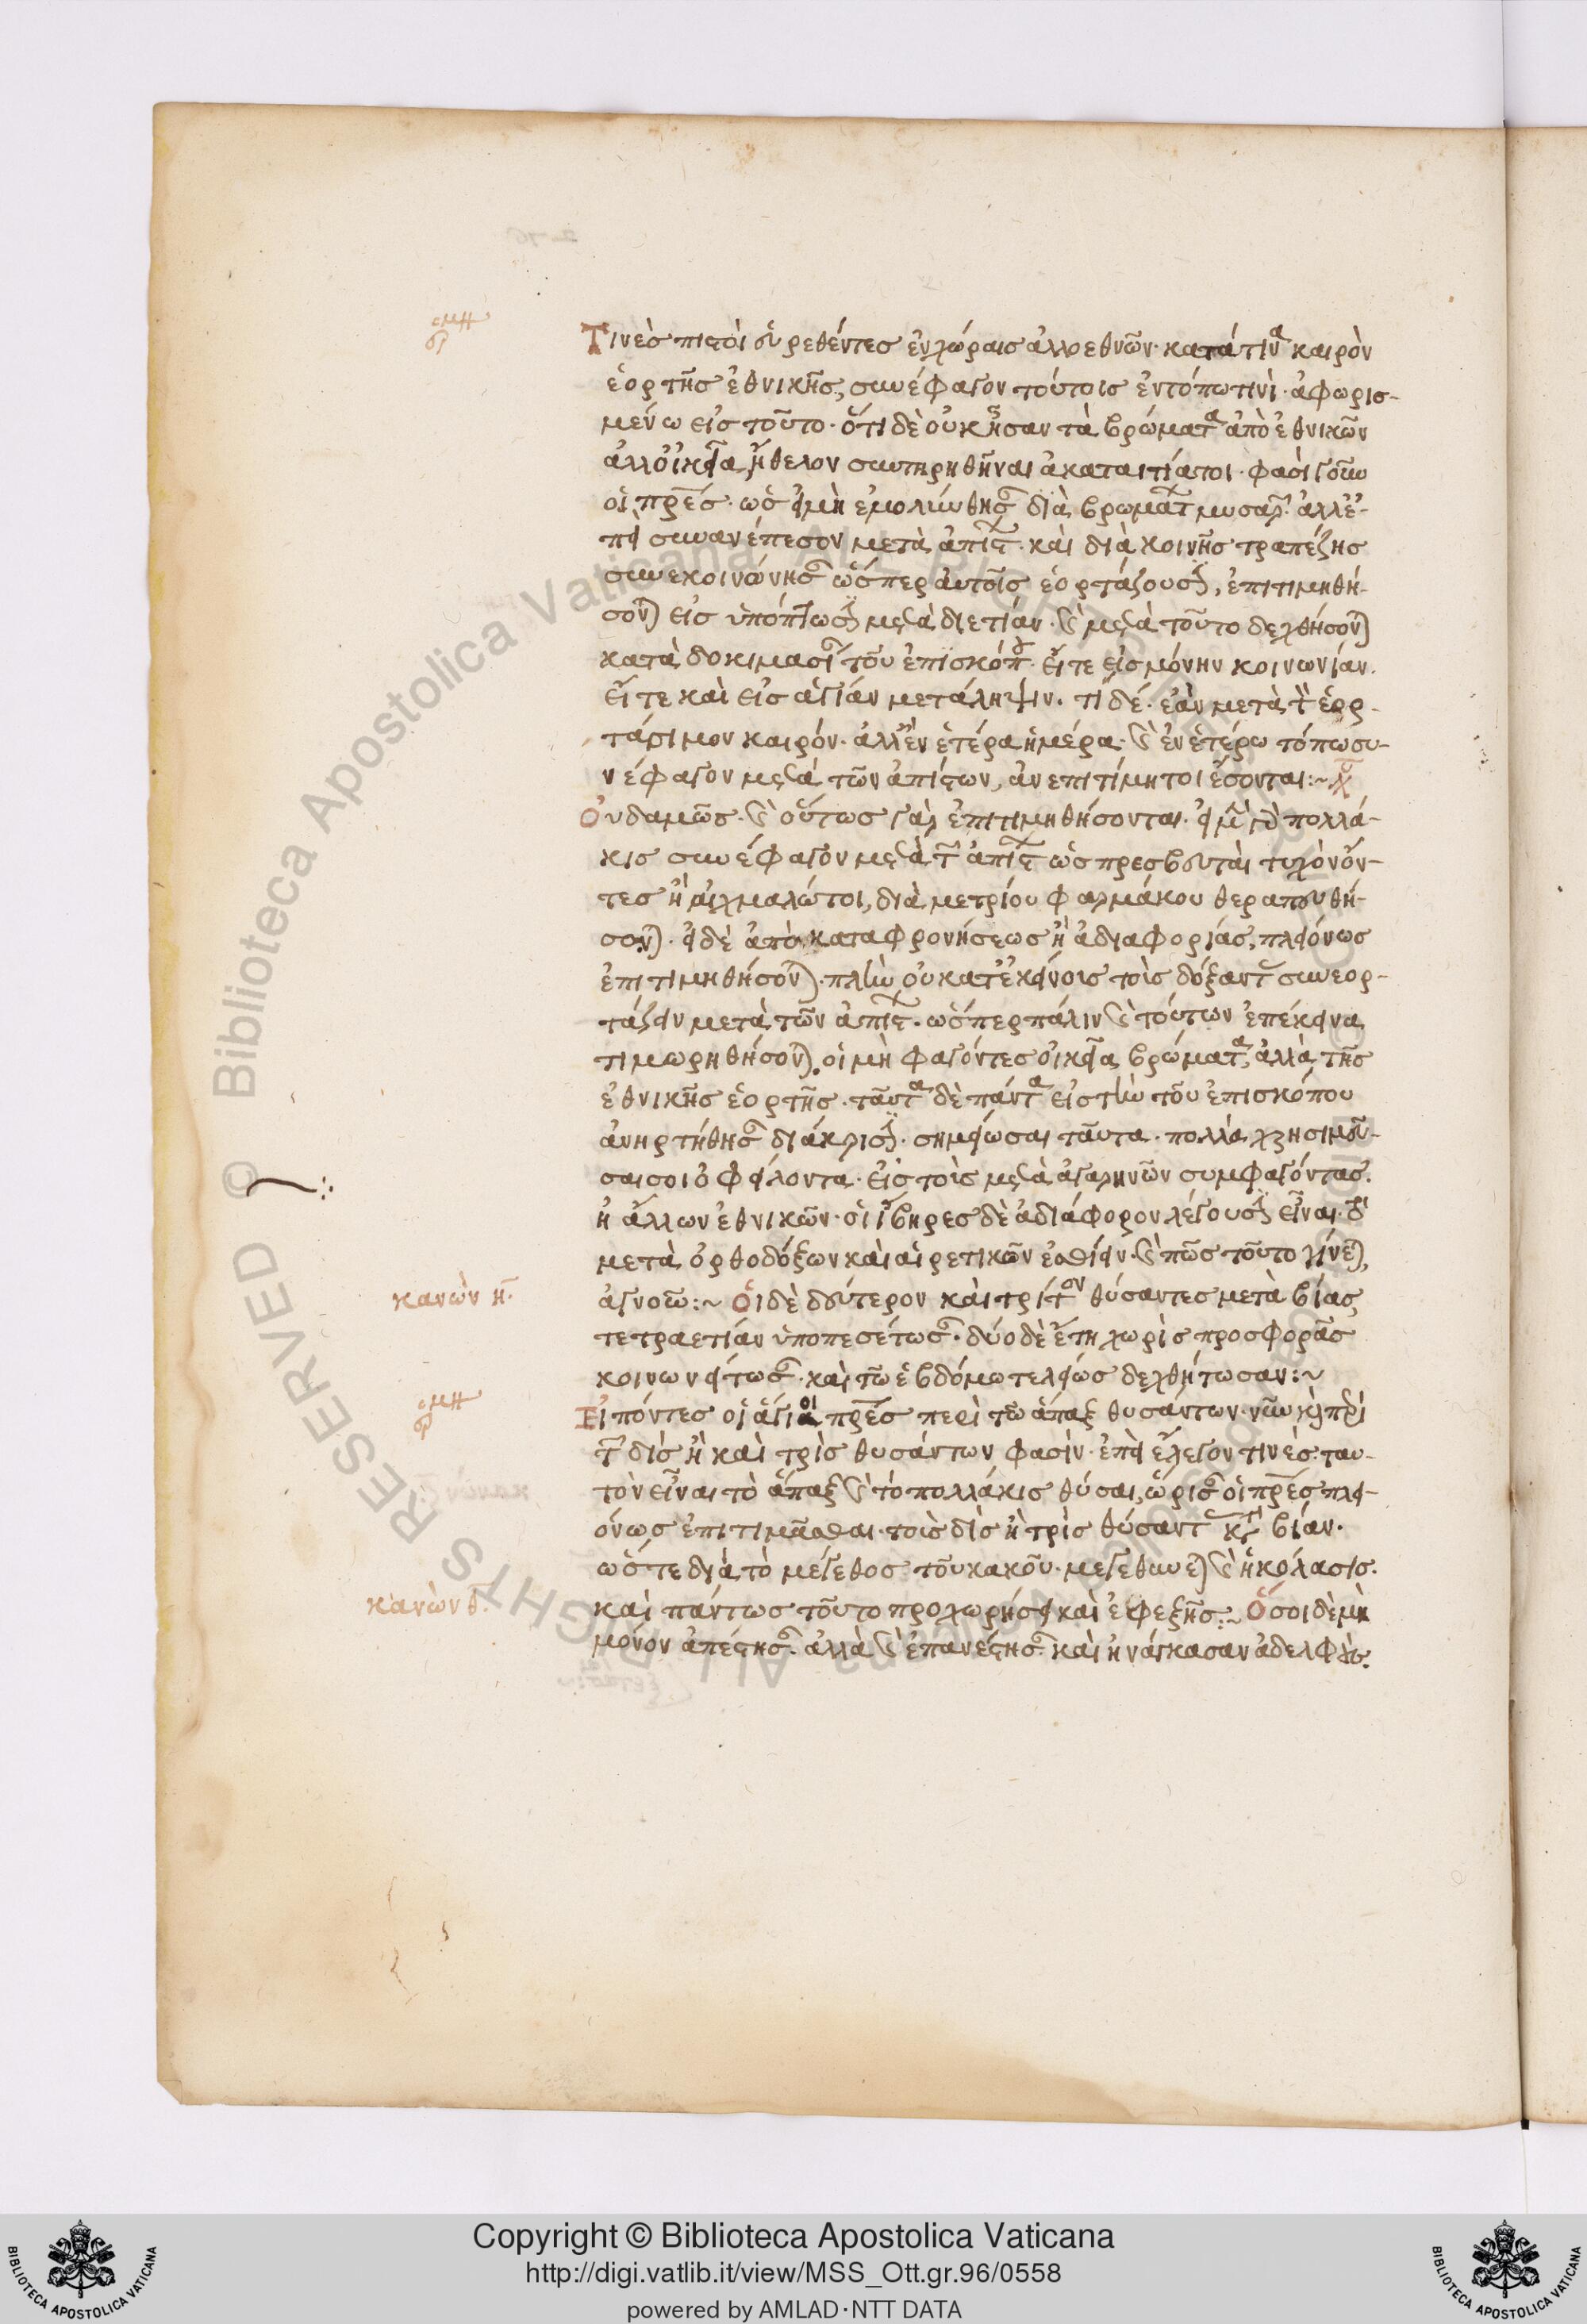 ἑρμη
Τινὲς πιστοὶ εὑρεθέντες ἐν χώραις ἀλλοεθνῶν· κατά τινα καιρὸν
ἑορτῆς ἐθνικῆς, συνέφαγον τούτοις ἐν τόπω τινὶ· ἀφωρισ-
μένω εἰς τοῦτο· ὅτι δὲ οὐκ ἦσαν τὰ βρώματα ἀπὸ ἐθνικῶν
ἀλλ' οἰκεῖα, ἤθελον συντηρηθῆναι ἀκαταιτίατοι· φασὶ γοῦν
οἱ πρες· ὡς εἰ μὴ ἐμολύνθησαν διὰ βρωμάτων μυσαρῶν· ἀλλ' ἐ-
πεὶ συνανέπεσον μετὰ ἀπίστων· καὶ διὰ κοινῆς τραπέζης
συνεκοινώνησαν ὥσπερ αὐτοῖς ἑορτάζουσιν, ἐπιτιμηθή-
σονται εἰς ὑπόπτωσιν μετὰ διετίαν· καὶ μετὰ τοῦτο δεχθήσονται
κατὰ δοκιμασίαν τοῦ ἐπισκόπου· εἴτε εἰς μόνην κοινωνίαν.
εἴτε καὶ εἰς ἁγίαν μετάληψιν. τί δέ· ἐὰν μετὰ τὸν ἑορ-
τάσιμον καιρόν· ἀλλ' ἐν ἑτέρα ἡμέρα· καὶ ἐν ἑτέρω τόπω συ-
νέφαγον μετὰ τῶν ἀπίστων, ἀνεπιτίμητοι ἔσονται:~
Οὐδαμῶς· καὶ οὕτως γὰρ ἐπιτιμηθήσονται· εἰ μὲν γὰρ πολλά-
κις συνέφαγον μετὰ τῶν ἀπίστων ὡς πρεσβευταὶ τυχὸν ὄν-
τες ἢ αἰχμαλώτοι, διὰ μετρίου φαρμάκου θεραπευθή-
σονται· εἰ δὲ ἀπὸ καταφρονήσεως ἢ ἀδιαφορίας, πλειόνως
ἐπιτιμηθήσονται· πλὴν οὐ κατ' ἐκείνοις τοῖς δόξαντας συνεορ-
τάζειν μετὰ τῶν ἀπίστων· ὥσπερ πάλιν καὶ τούτων ἐπέκεινα
τιμωρηθήσονται, οἱ μὴ φαγόντες οἰκεῖα βρώματα, ἀλλὰ τῆς
ἐθνικῆς ἑορτῆς· ταῦτα δὲ πάντα εἰς τὴν τοῦ ἐπισκόπου
ἀνηρτήθησαν διάκρισιν· σημείωσαι ταῦτα· πολλὰ χρησιμεῦ-
σαί σοι ὀφείλοντα· εἰς τοῖς μετὰ ἀγαρηνῶν συμφαγόντας.
ἢ ἄλλων ἐθνικῶν· οἱ ἴβηρες δὲ ἀδιάφορον λέγουσιν εἶναι· τὸ
μετὰ ὀρθοδόξων καὶ αἱρετικῶν ἐσθίειν· καὶ πῶς τοῦτο γίνεται,
κανὼν η. ἀγνοῶ:~ Οἱ δὲ δεύτερον καὶ τρίτον θύσαντες μετὰ βίας,
τετραετίαν ὑποπεσέτωσαν· δύο δὲ ἔτη χωρὶς προσφορᾶς
κοινωνείτωσαν· καὶ τῶ ἑβδόμω τελείως δεχθήτωσαν:~
ἑρμη
Εἰπόντες οἱ ἅγιοι πρες περὶ τῶν ἅπαξ θυσάντων· νῦν καὶ περὶ
τῶν δὶς ἢ καὶ τρὶς θυσάντων φασίν· ἐπεὶ ἔλεγον τινὲς· ταυ-
τὸν εἶναι τὸ ἅπαξ καὶ τὸ πολλάκις θῦσαι, ὥρισαν οἱ πρες πλει-
όνως ἐπιτιμᾶσθαι· τοὺς δὶς ἢ τρὶς θύσαντας κατὰ βίαν.
ὥστε διὰ τὸ μέγεθος τοῦ κακοῦ· μεγεθύνεται καὶ ἡ κόλασις.
κανὼν θ. καὶ πάντως τοῦτο προχωρήσει καὶ ἐφεξῆς:~ Ὅσοι δὲ μὴ
μόνον ἀπέστησαν· ἀλλὰ καὶ ἐπανέστησαν· καὶ ἠνάγκασαν ἀδελφοὺς.
Copyright © Biblioteca Apostolica Vaticana
http://digi.vatlib.it/view/MSS_Ott.gr.96/0558
powered by AMLAD·NTT DATA
BIBLIOTECA APOSTOLICA VATICANA
BIBLIOTECA APOSTOLICA VATICANA
© Biblioteca Apostolica Vaticana ALL RIGHTS RESERVED